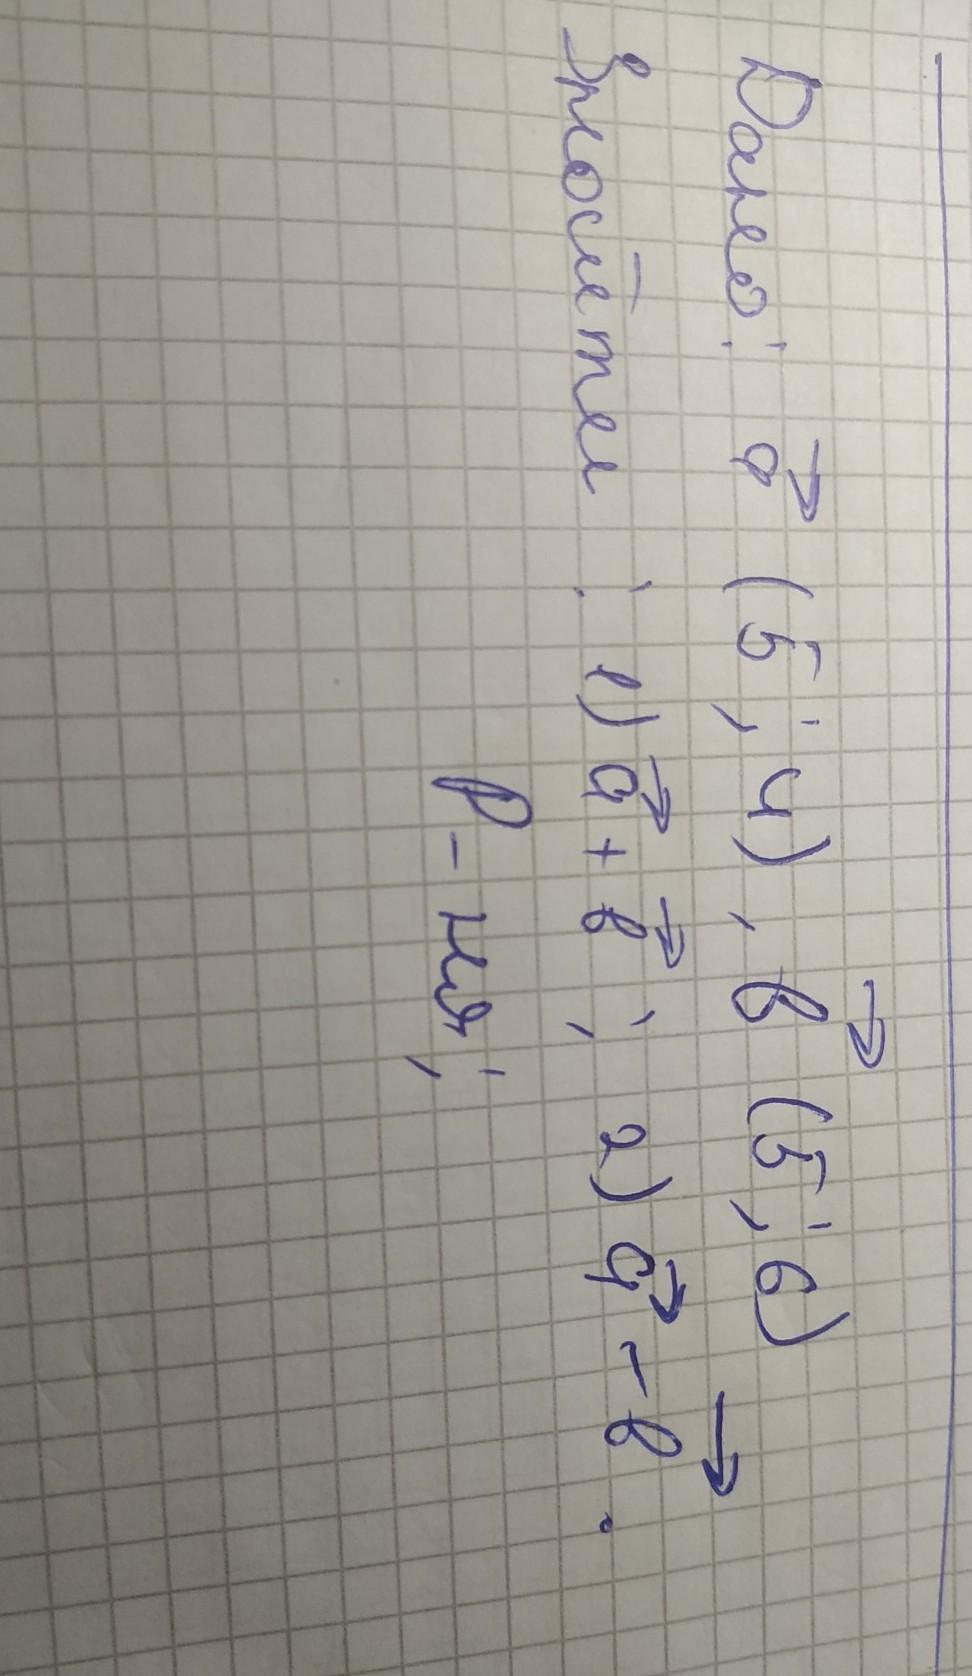 Дано: a⃗ (5; 4), b⃗ (5; 6)
Знайти: 1) a⃗ + b⃗; 2) a⃗ - b⃗.
Р-ня;